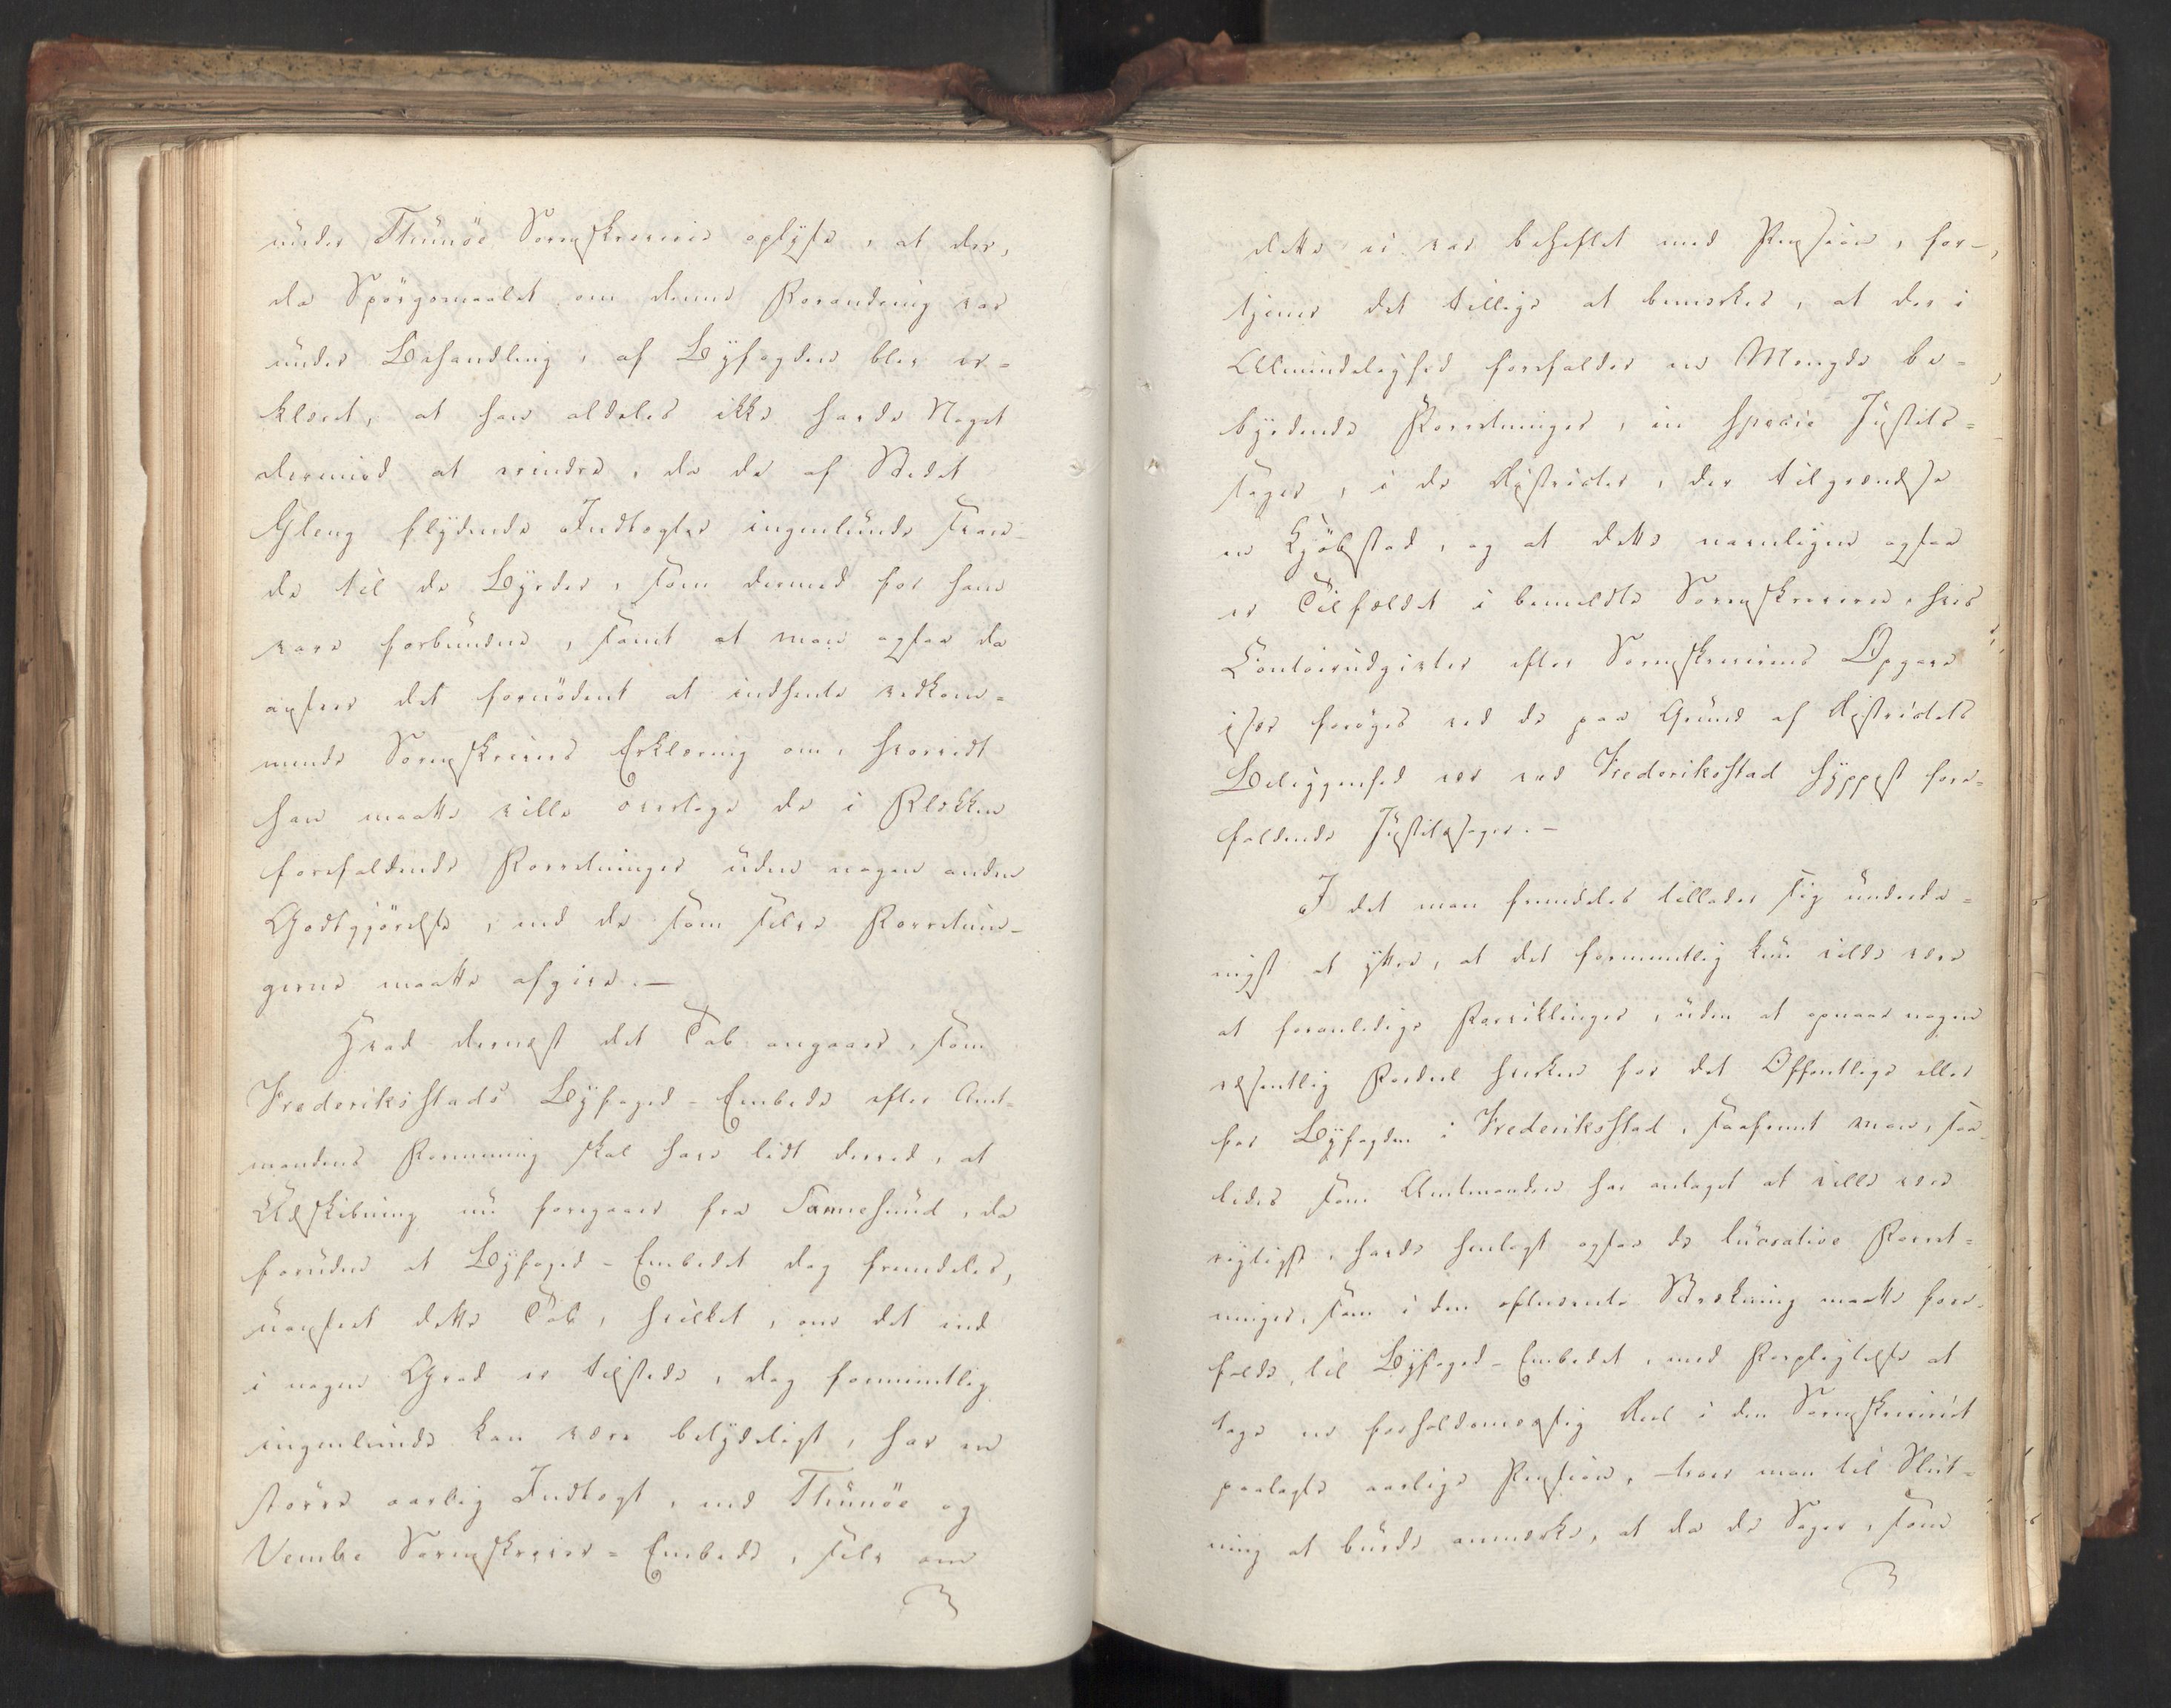 under Thunöe Sorenskriverie oplyste, at der,
da Spörgsmaalet om denne Forandring var
under Behandling, af Byfogden blev er-
klæret, at han aldeles ikke havde Noget
dermed at erindre, da de af Stedet
Gleng flydende Indtægter ingenlunde svare-
de til de Byrder, som dermed for ham
vare forbundne, samt at man ogsaa da
ansaae det fornödent at indhente vedkom-
mende Sorenskrivers Erklæring om, hvorvidt
han maatte ville overtage de i Flækken
forefaldende Forretninger uden nogen anden
Godtgjörelse, end de som selve Forretnin-
gerne maatte afgive. —
Hvad dernæst det Tab angaaer, som
Frederiksstads Byfoged-Embede efter Amt-
mandens Formening skal have lidt derved, at
Udskibning nu foregaaer fra Sannesund, da
foruden at Byfoged-Embedet dog fremdeles,
uanseet dette Tab, hvilket, om det end
i nogen Grad er tilstede, dog formeentlig
ingenlunde kan være betydeligt, har en
större aarlig Indtægt, end Thunöe og
Vembe Sorenskriver-Embede, selv om
dette ei var beheftet med Pension, for-
tjener det tillige at bemærkes, at der i
Almindelighed forefalder en Mængde be-
byrdende Forretninger, in specie Justits-
sager, i de Districter, der tilgrændse
en Kjöbstad, og at dette navnligen ogsaa
er Tilfældet i bemeldte Sorenskriverie, hvis
Contoirudgivter efter Sorenskriverens Opgave
især foröges ved de paa Grund af Districtets
Beliggenhed nær ved Frederiksstad hyppigst fore-
faldende Justitssager. —
I det man fremdeles tillader sig underda-
nigst at yttre, at det formeentlig kun vilde være
at foranledige Forviklinger, uden at opnaae nogen
væsentlig Fordeel hverken for det Offentlige eller
for Byfogden i Frederiksstad, saafremt man, saa-
ledes som Amtmanden har antaget at ville være
rigtigst, havde henlagt ogsaa de lucrative Forret-
ninger, som i den ommeldte Strækning maatte fore-
falde, til Byfoged-Embedet, med Forpligtelse at
tage en forholdsmæssig Deel i den Sorenskriveriet
paalagte aarlige Pension, troer man til Slut-
ning at burde anmærke, at da de Sager, som